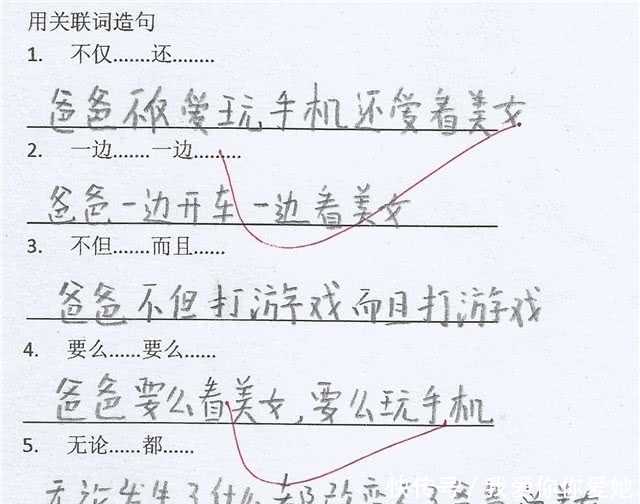 用关联词造句
1. 不仅.......还........
爸爸不仅爱玩手机还爱看美女
2. 一边.......一边.........
爸爸一边开车一边看美女
3. 不但.......而且......
爸爸不但打游戏而且打游戏
4. 要么......要么......
爸爸要么看美女,要么玩手机
5. 无论......都......
无论发生了什么都改变不了爸爸
快传号/我爱你你爱她